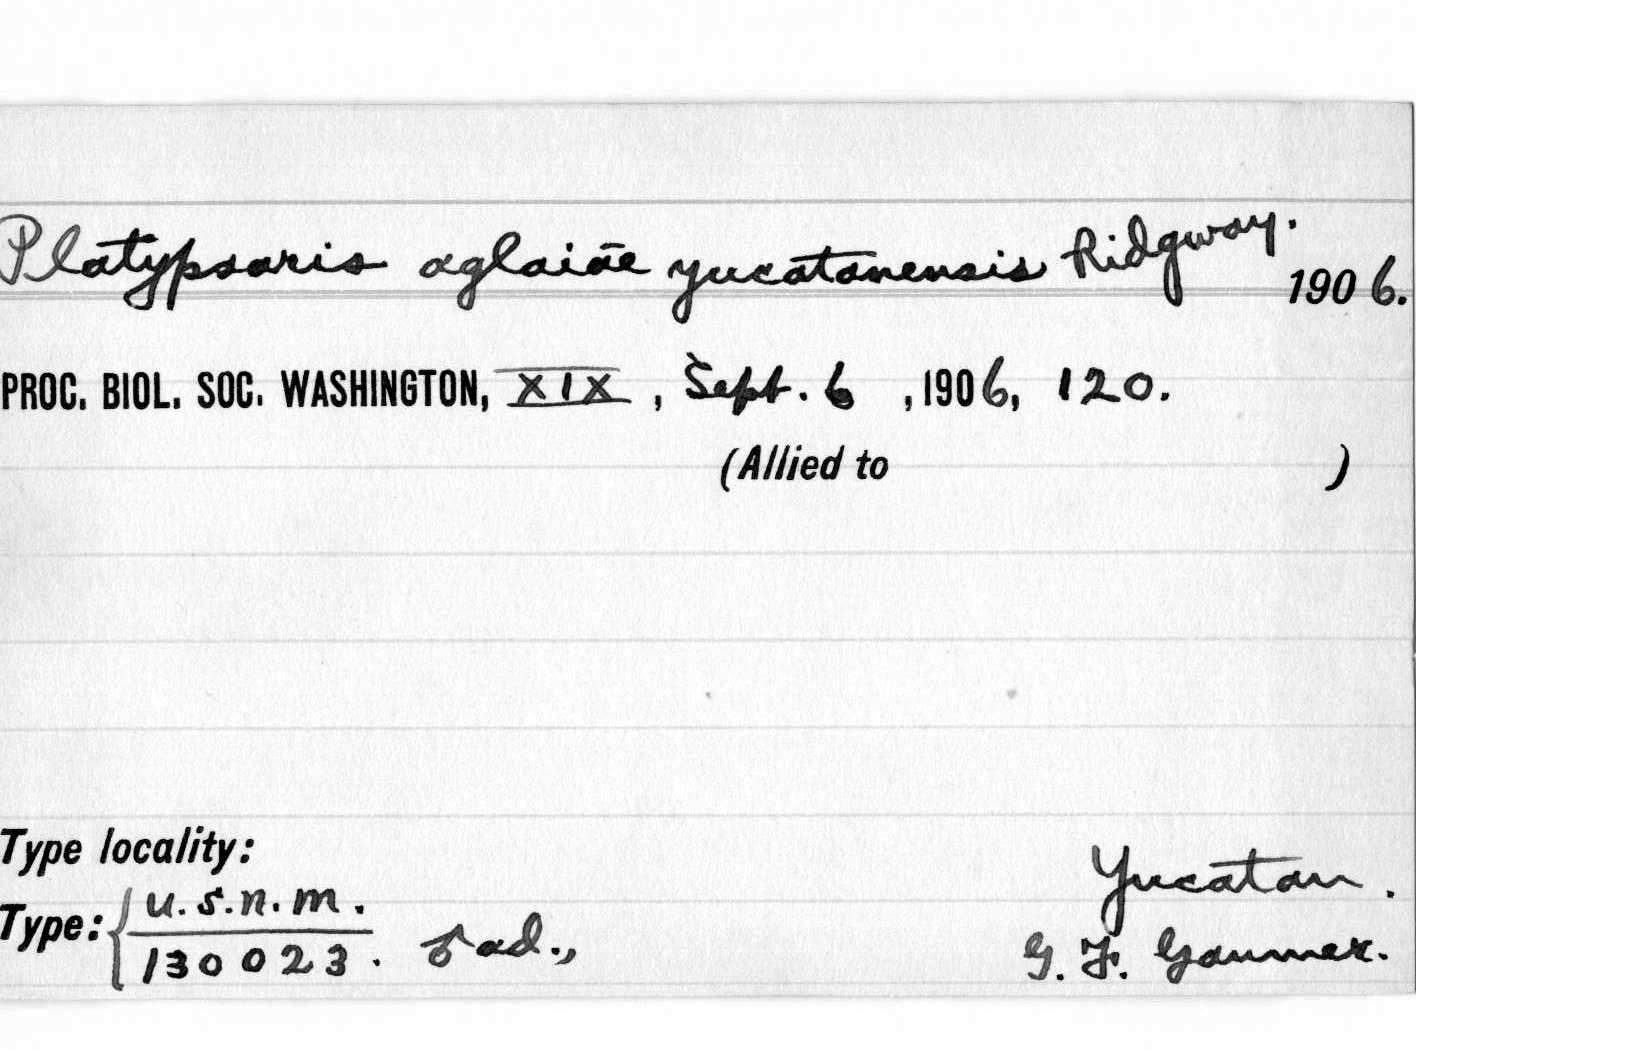 Platypsaris aglaiae yucatanensis Ridgway. 1906.
PROC. BIOL. SOC. WASHINGTON, XIX, Sept. 6, 1906, 120.
(Allied to )
Type locality: Yucatan.
Type: { U.S.N.M. / 130023. ♂ ad., G. F. Gaumer.